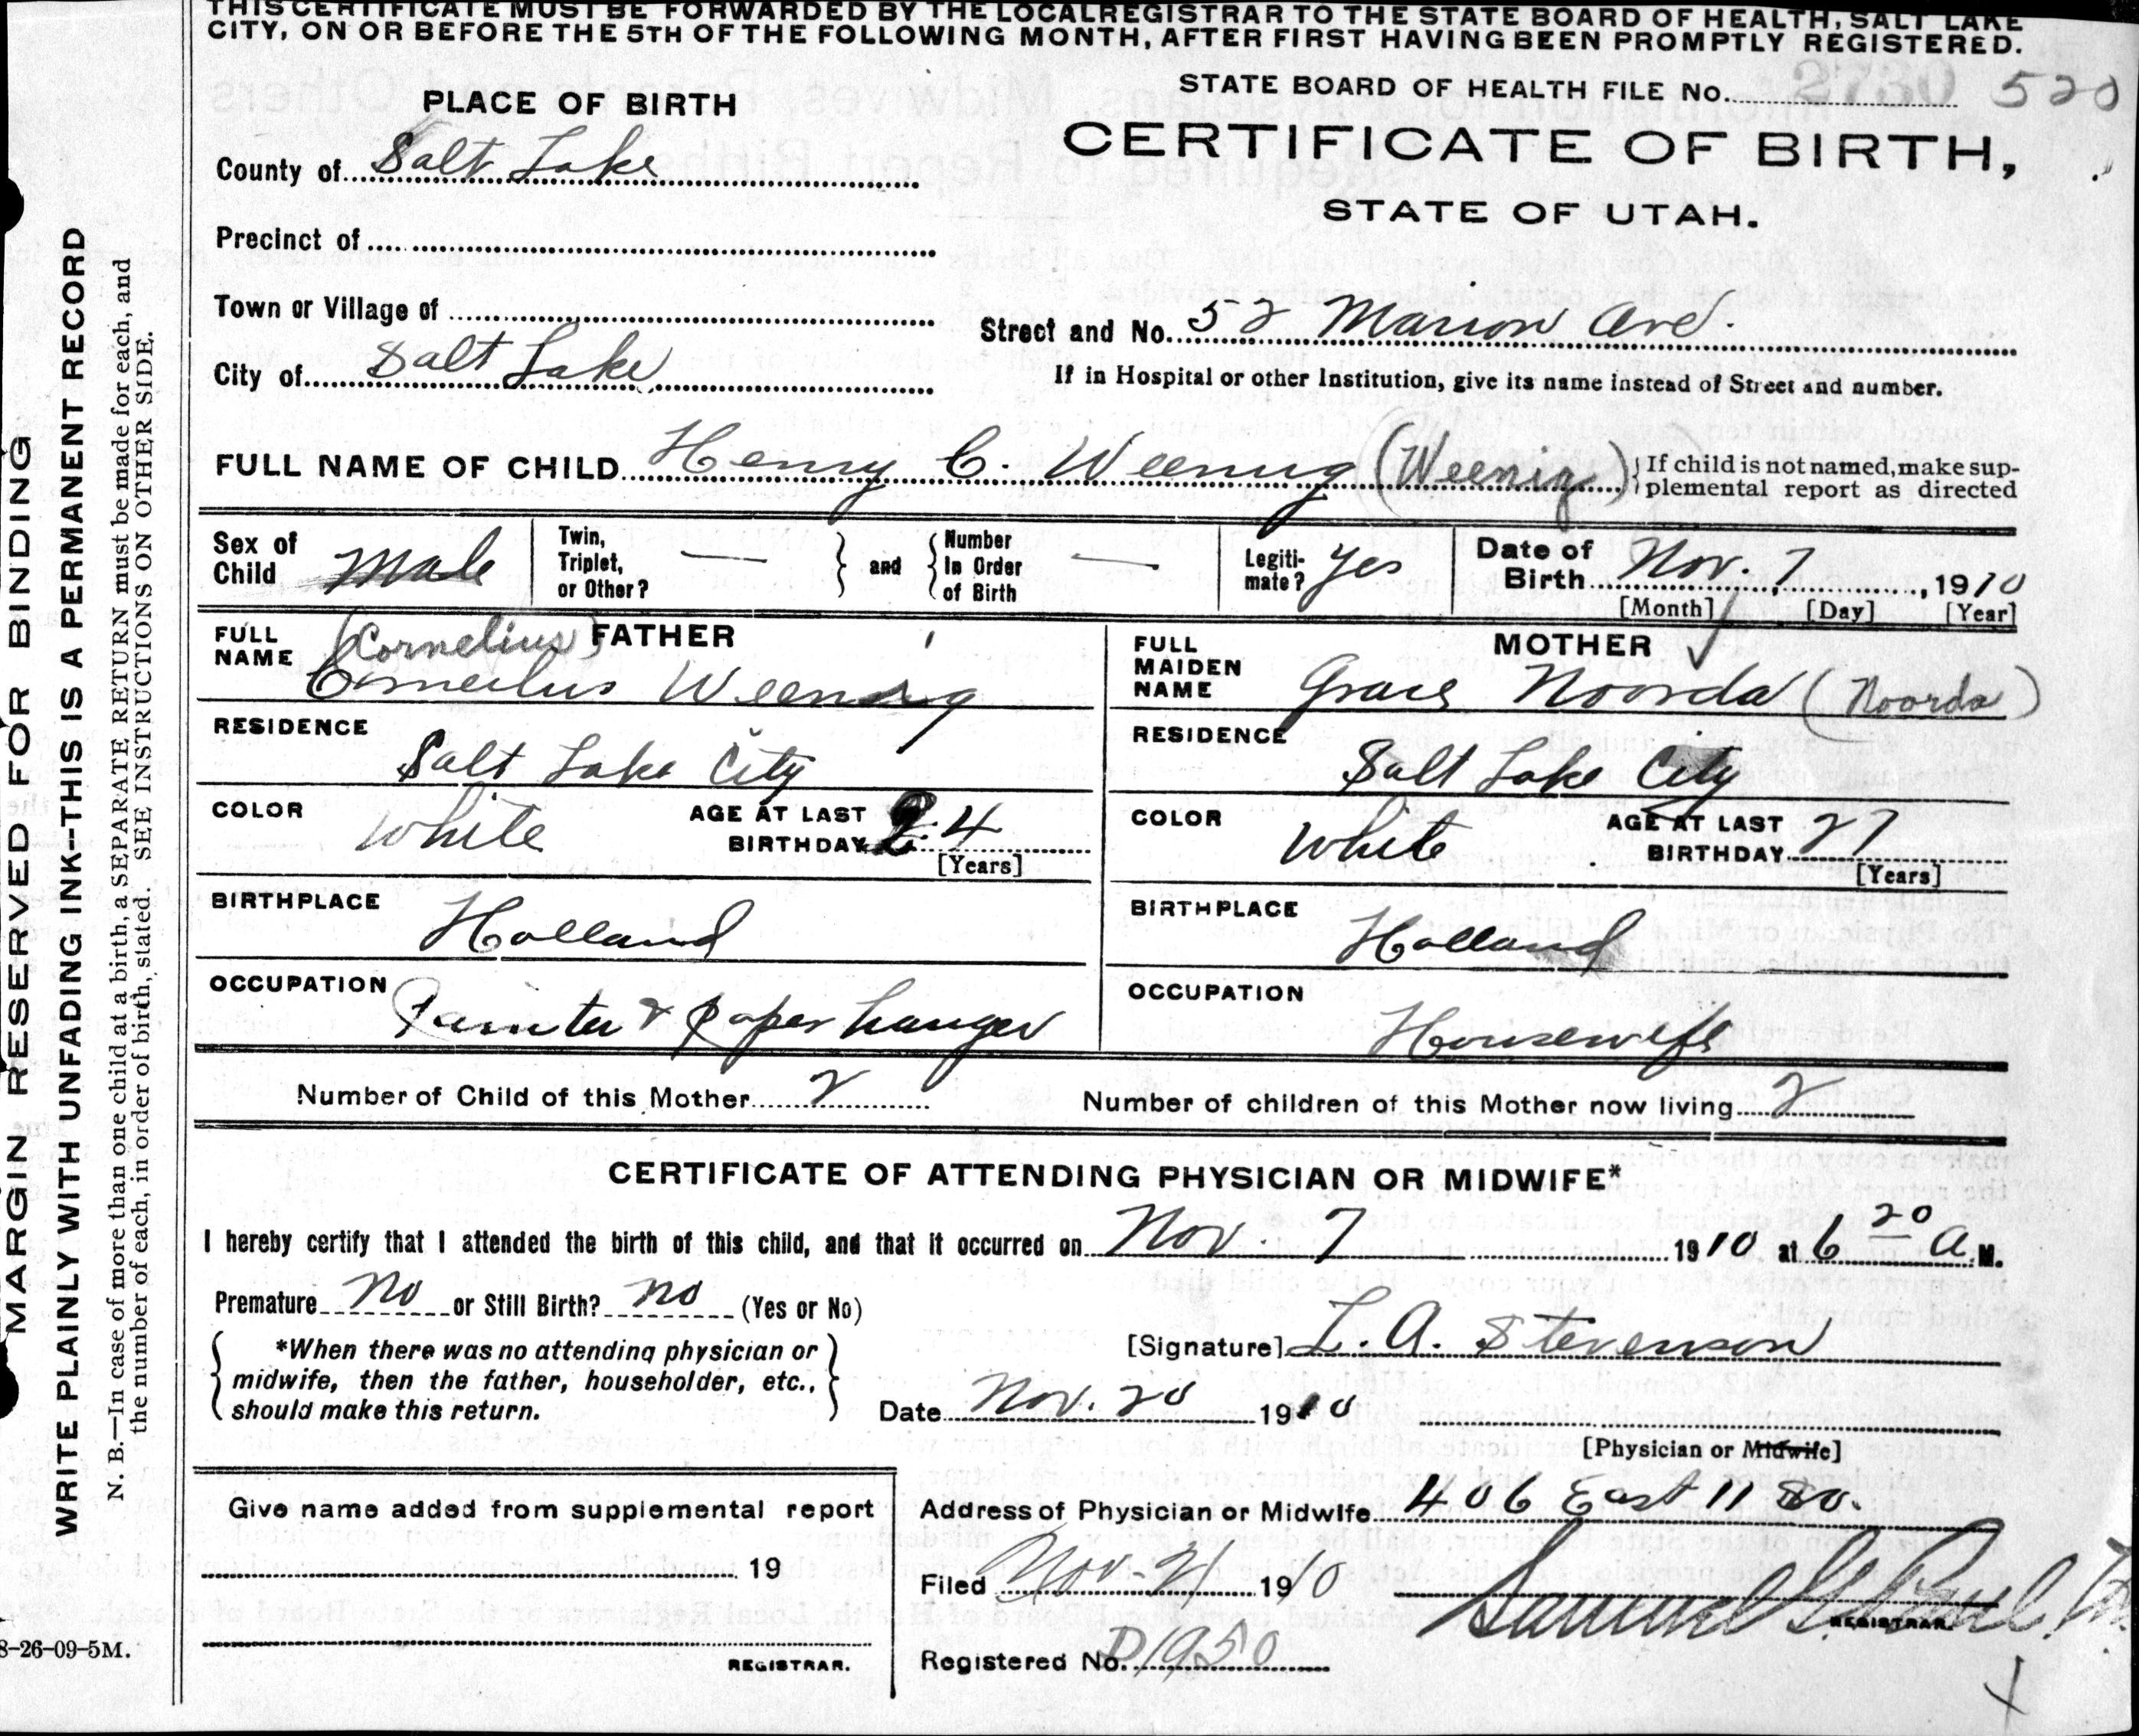 THIS CERTIFICATE MUST BE FORWARDED BY THE LOCAL REGISTRAR TO THE STATE BOARD OF HEALTH, SALT LAKE
CITY, ON OR BEFORE THE 5TH OF THE FOLLOWING MONTH, AFTER FIRST HAVING BEEN PROMPTLY REGISTERED.
STATE BOARD OF HEALTH FILE No. 2730 520
PLACE OF BIRTH
CERTIFICATE OF BIRTH,
STATE OF UTAH.
County of Salt Lake
Precinct of
Town or Village of
Street and No. 52 Marion Ave.
City of Salt Lake
If in Hospital or other Institution, give its name instead of Street and number.
FULL NAME OF CHILD Henry C. Weenig (Weenig) If child is not named, make sup-
plemental report as directed
Sex of Child Male
Twin, Triplet, or Other? —
and Number In Order of Birth —
Legiti-mate? Yes
Date of Birth Nov. 7, 1910
[Month] [Day] [Year]
FATHER
FULL NAME (Cornelius)
Cornelius Weenig
RESIDENCE
Salt Lake City
COLOR White AGE AT LAST BIRTHDAY 24
[Years]
BIRTHPLACE
Holland
OCCUPATION
Painter & Paper hanger
MOTHER
FULL MAIDEN NAME Grace Noorda (Noorda)
RESIDENCE
Salt Lake City
COLOR White AGE AT LAST BIRTHDAY 27
[Years]
BIRTHPLACE
Holland
OCCUPATION
Housewife
Number of Child of this Mother 2 Number of children of this Mother now living 2
CERTIFICATE OF ATTENDING PHYSICIAN OR MIDWIFE*
I hereby certify that I attended the birth of this child, and that it occurred on Nov. 7 1910 at 6 20 A.M.
Premature No or Still Birth? No (Yes or No)
*When there was no attending physician or
midwife, then the father, householder, etc.,
should make this return.
[Signature] L. A. Stevenson
Date Nov. 20 1910
[Physician or Midwife]
Address of Physician or Midwife 406 East 11 So.
Give name added from supplemental report
19
REGISTRAR.
Filed Nov-21 1910
Samuel G. Paul
REGISTRAR.
Registered No. D1950
MARGIN RESERVED FOR BINDING
WRITE PLAINLY WITH UNFADING INK--THIS IS A PERMANENT RECORD
N. B.—In case of more than one child at a birth, a SEPARATE RETURN must be made for each, and
the number of each, in order of birth, stated. SEE INSTRUCTIONS ON OTHER SIDE.
8-26-09-5M.